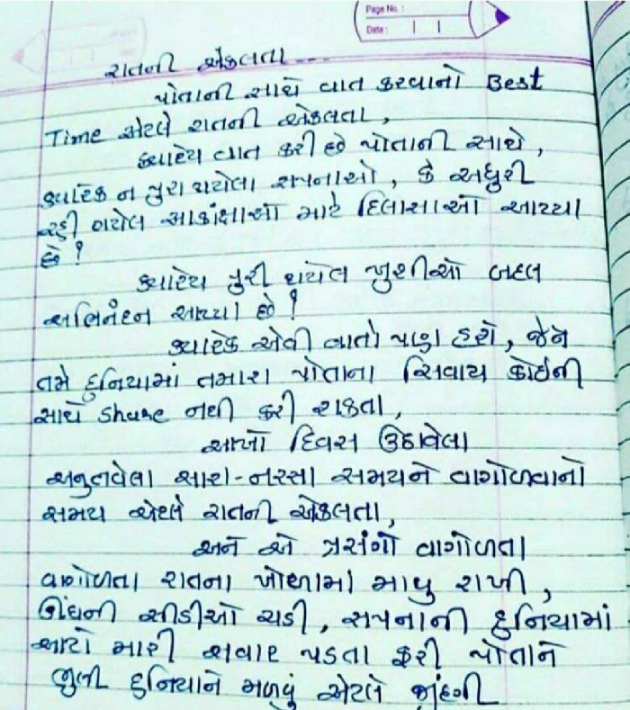 Page No. :
Date :
રાતની એકલતા ---
પોતાની સાથે વાત કરવાનો Best
Time એટલે રાતની એકલતા,
ક્યારેય વાત કરી છે પોતાની સાથે,
ક્યારેક ન પુરા થયેલા સપનાઓ, કે અધુરી
રહી ગયેલ આકાંક્ષાઓ માટે દિલાસાઓ આપ્યા
છે ?
ક્યારેય પુરી થયેલ ખુશીઓ બદલ
અભિનંદન આપ્યા છે ?
ક્યારેક એવી વાતો પણ હશે, જેને
તમે દુનિયામાં તમારા પોતાના સિવાય કોઈની
સાથે share નથી કરી શકતા,
આખો દિવસ ઉઠાવેલા
અનુભવેલા સારા-નરસા સમયને વાગોળવાનો
સમય એટલે રાતની એકલતા,
અને એ પ્રસંગો વાગોળતા
વાગોળતા રાતના ખોળામાં માથુ રાખી,
ઊંઘની સીડીઓ ચડી, સપનાની દુનિયામાં
આંટો મારી સવાર પડતા ફરી પોતાને
ભુલી દુનિયાને મળવું એટલે જીંદગી